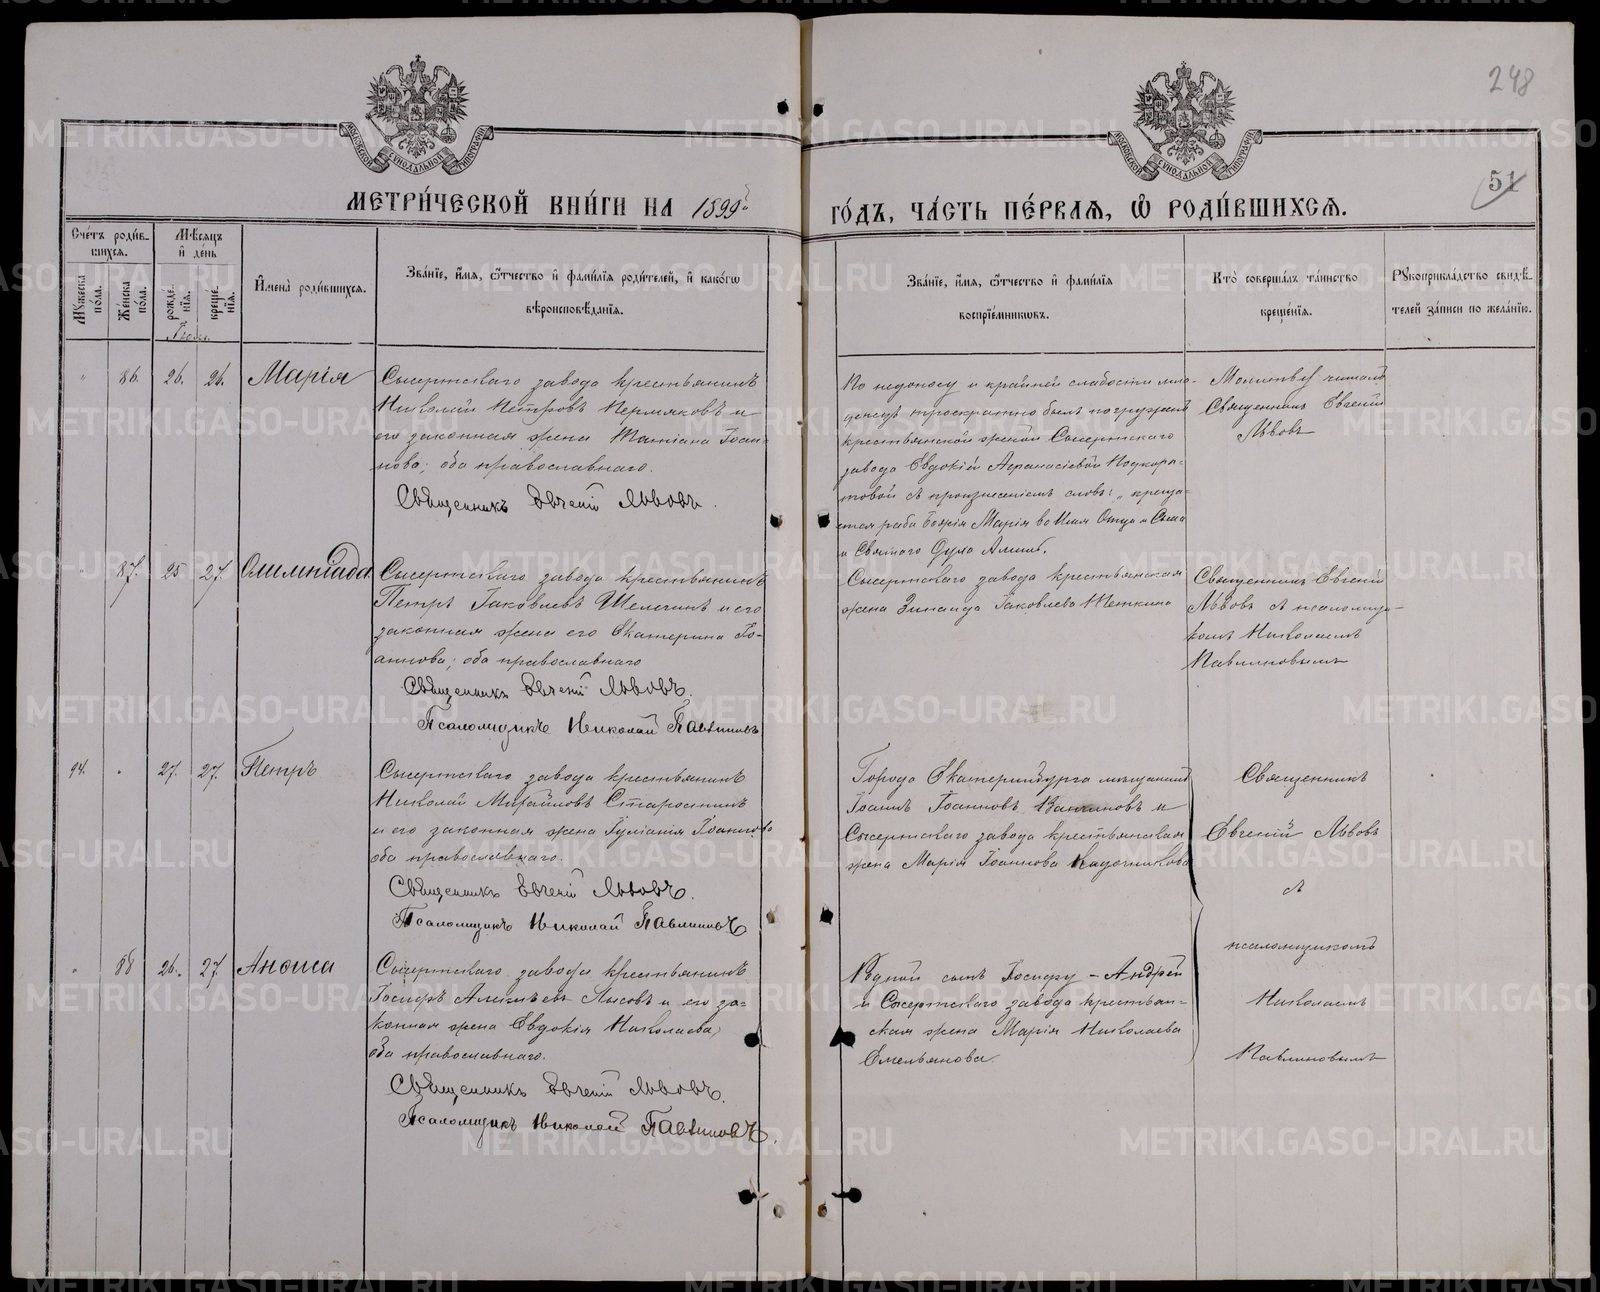 248
51
МОСКОВСКОЙ СѴНОДАЛЬНОЙ ТИПОГРАФІИ
МОСКОВСКОЙ СѴНОДАЛЬНОЙ ТИПОГРАФІИ
МЕТРИ́ЧЕСКОЙ КНИ́ГИ НА 1899й
ГО́ДЪ, ЧА́СТЬ ПЕ́РВАЯ, Ѽ РОДИ́ВШИХСЯ.
Сче́тъ роди́в-
шихся.
Мѣ́сяцъ
и҆ де́нь
Мꙋ́жеска по́ла.
Же́нска по́ла.
рожде́нїя.
креще́нїя.
И҆мена̀ роди́вшихся.
Зва́нїе, и҆́мя, ѻ҆́тчество и҆ фами́лїя роди́телей, и҆ како́гѡ
вѣроисповѣ́данїя.
Зва́нїе, и҆́мя, ѻ҆́тчество и҆ фами́лїя
воспрїе́мникѡвъ.
Кто̀ соверша́лъ та́инство
креще́нїя.
Рꙋкоприкла́дство свидѣ́-
телей за́писи по жела́нїю.
" 86. 26. 26. Марія
Сысертскаго завода крестьянинъ
Николай Петровъ Пермяковъ и
его законная жена Татіана Іоан-
нова; оба православнаго.
Священникъ Евгеній Львовъ.
По недоносу и крайней слабости мла-
денецъ троекратно былъ погруженъ
крестьянской женой Сысертскаго
завода Евдокіей Афанасіевой Подкоры-
товой съ произнесеніемъ словъ: „креща-
ется раба Божія Марія во Имя Отца и Сына
и Святаго Духа Аминь.
Молитву читалъ
Священникъ Евгеній
Львовъ
" 87. 25 27. Олимпіада
Сысертскаго завода крестьянинъ
Петръ Іаковлевъ и его
законная жена его Екатерина Іо-
аннова; оба православнаго
Священникъ Евгеній Львовъ.
Псаломщикъ Николай Павлиновъ
Сысертскаго завода крестьянская
жена Зинаида Іаковлева
Священникъ Евгеній
Львовъ съ псаломщи-
комъ Николаемъ
Павлиновымъ
94. " 27. 27. Петръ
Сысертскаго завода крестьянинъ
Николай Михайловъ Старостинъ
и его законная жена Іуліанія Іоаннова
оба православнаго.
Священникъ Евгеній Львовъ.
Псаломщикъ Николай Павлиновъ
Города Екатеринбурга мѣщанинъ
Іоаннъ Іоанновъ и
Сысертскаго завода крестьянская
жена Марія Іоаннова Кадочникова
Священникъ
Евгеній Львовъ
съ
псаломщикомъ
Николаемъ
Павлиновымъ
" 88 26. 27. Анѳиса
Сысертскаго завода крестьянинъ
Іосифъ Алексѣевъ Лысовъ и его за-
конная жена Евдокія Николаева,
оба православнаго.
Священникъ Евгеній Львовъ.
Псаломщикъ Николай Павлиновъ.
Родной сынъ Іосифу – Андрей
и Сысертскаго завода крестьян-
ская жена Марія Николаева
Емельянова.
METRIKI.GASO-URAL.RU